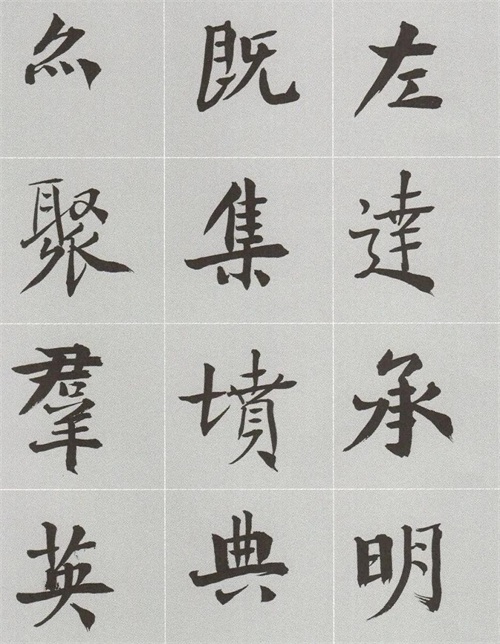 左達承明
既集墳典
亦聚羣英